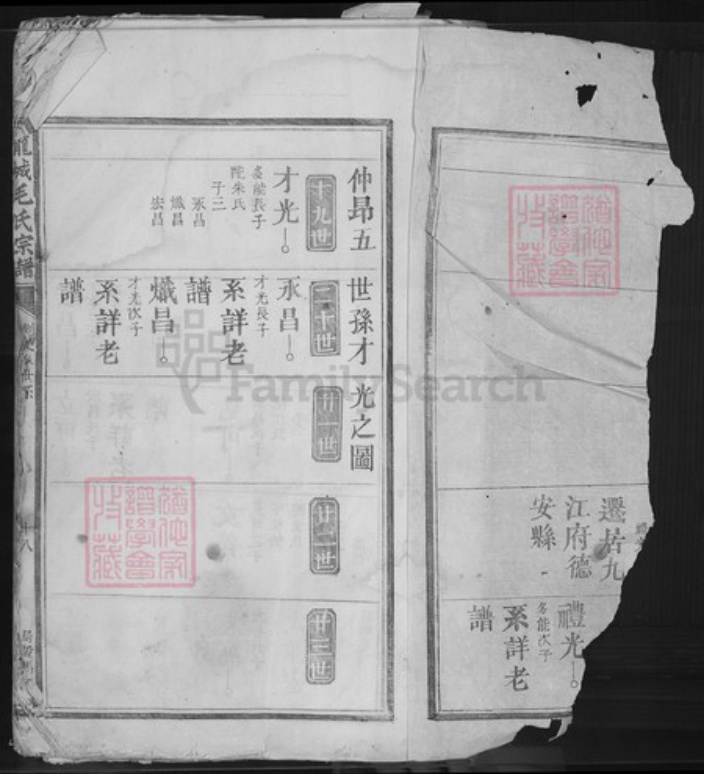 遷居九
江府德
安縣
禮光
多能次子
系詳老
譜
仲昂五世孫才光之圖
十九世
才光
多能長子
配朱氏
子三
永昌
熾昌
宏昌
二十世
永昌
才光長子
系詳老
譜
熾昌
才光次子
系詳老
譜
廿一世
廿二世
廿三世
龍城毛氏宗譜
十八
FamilySearch